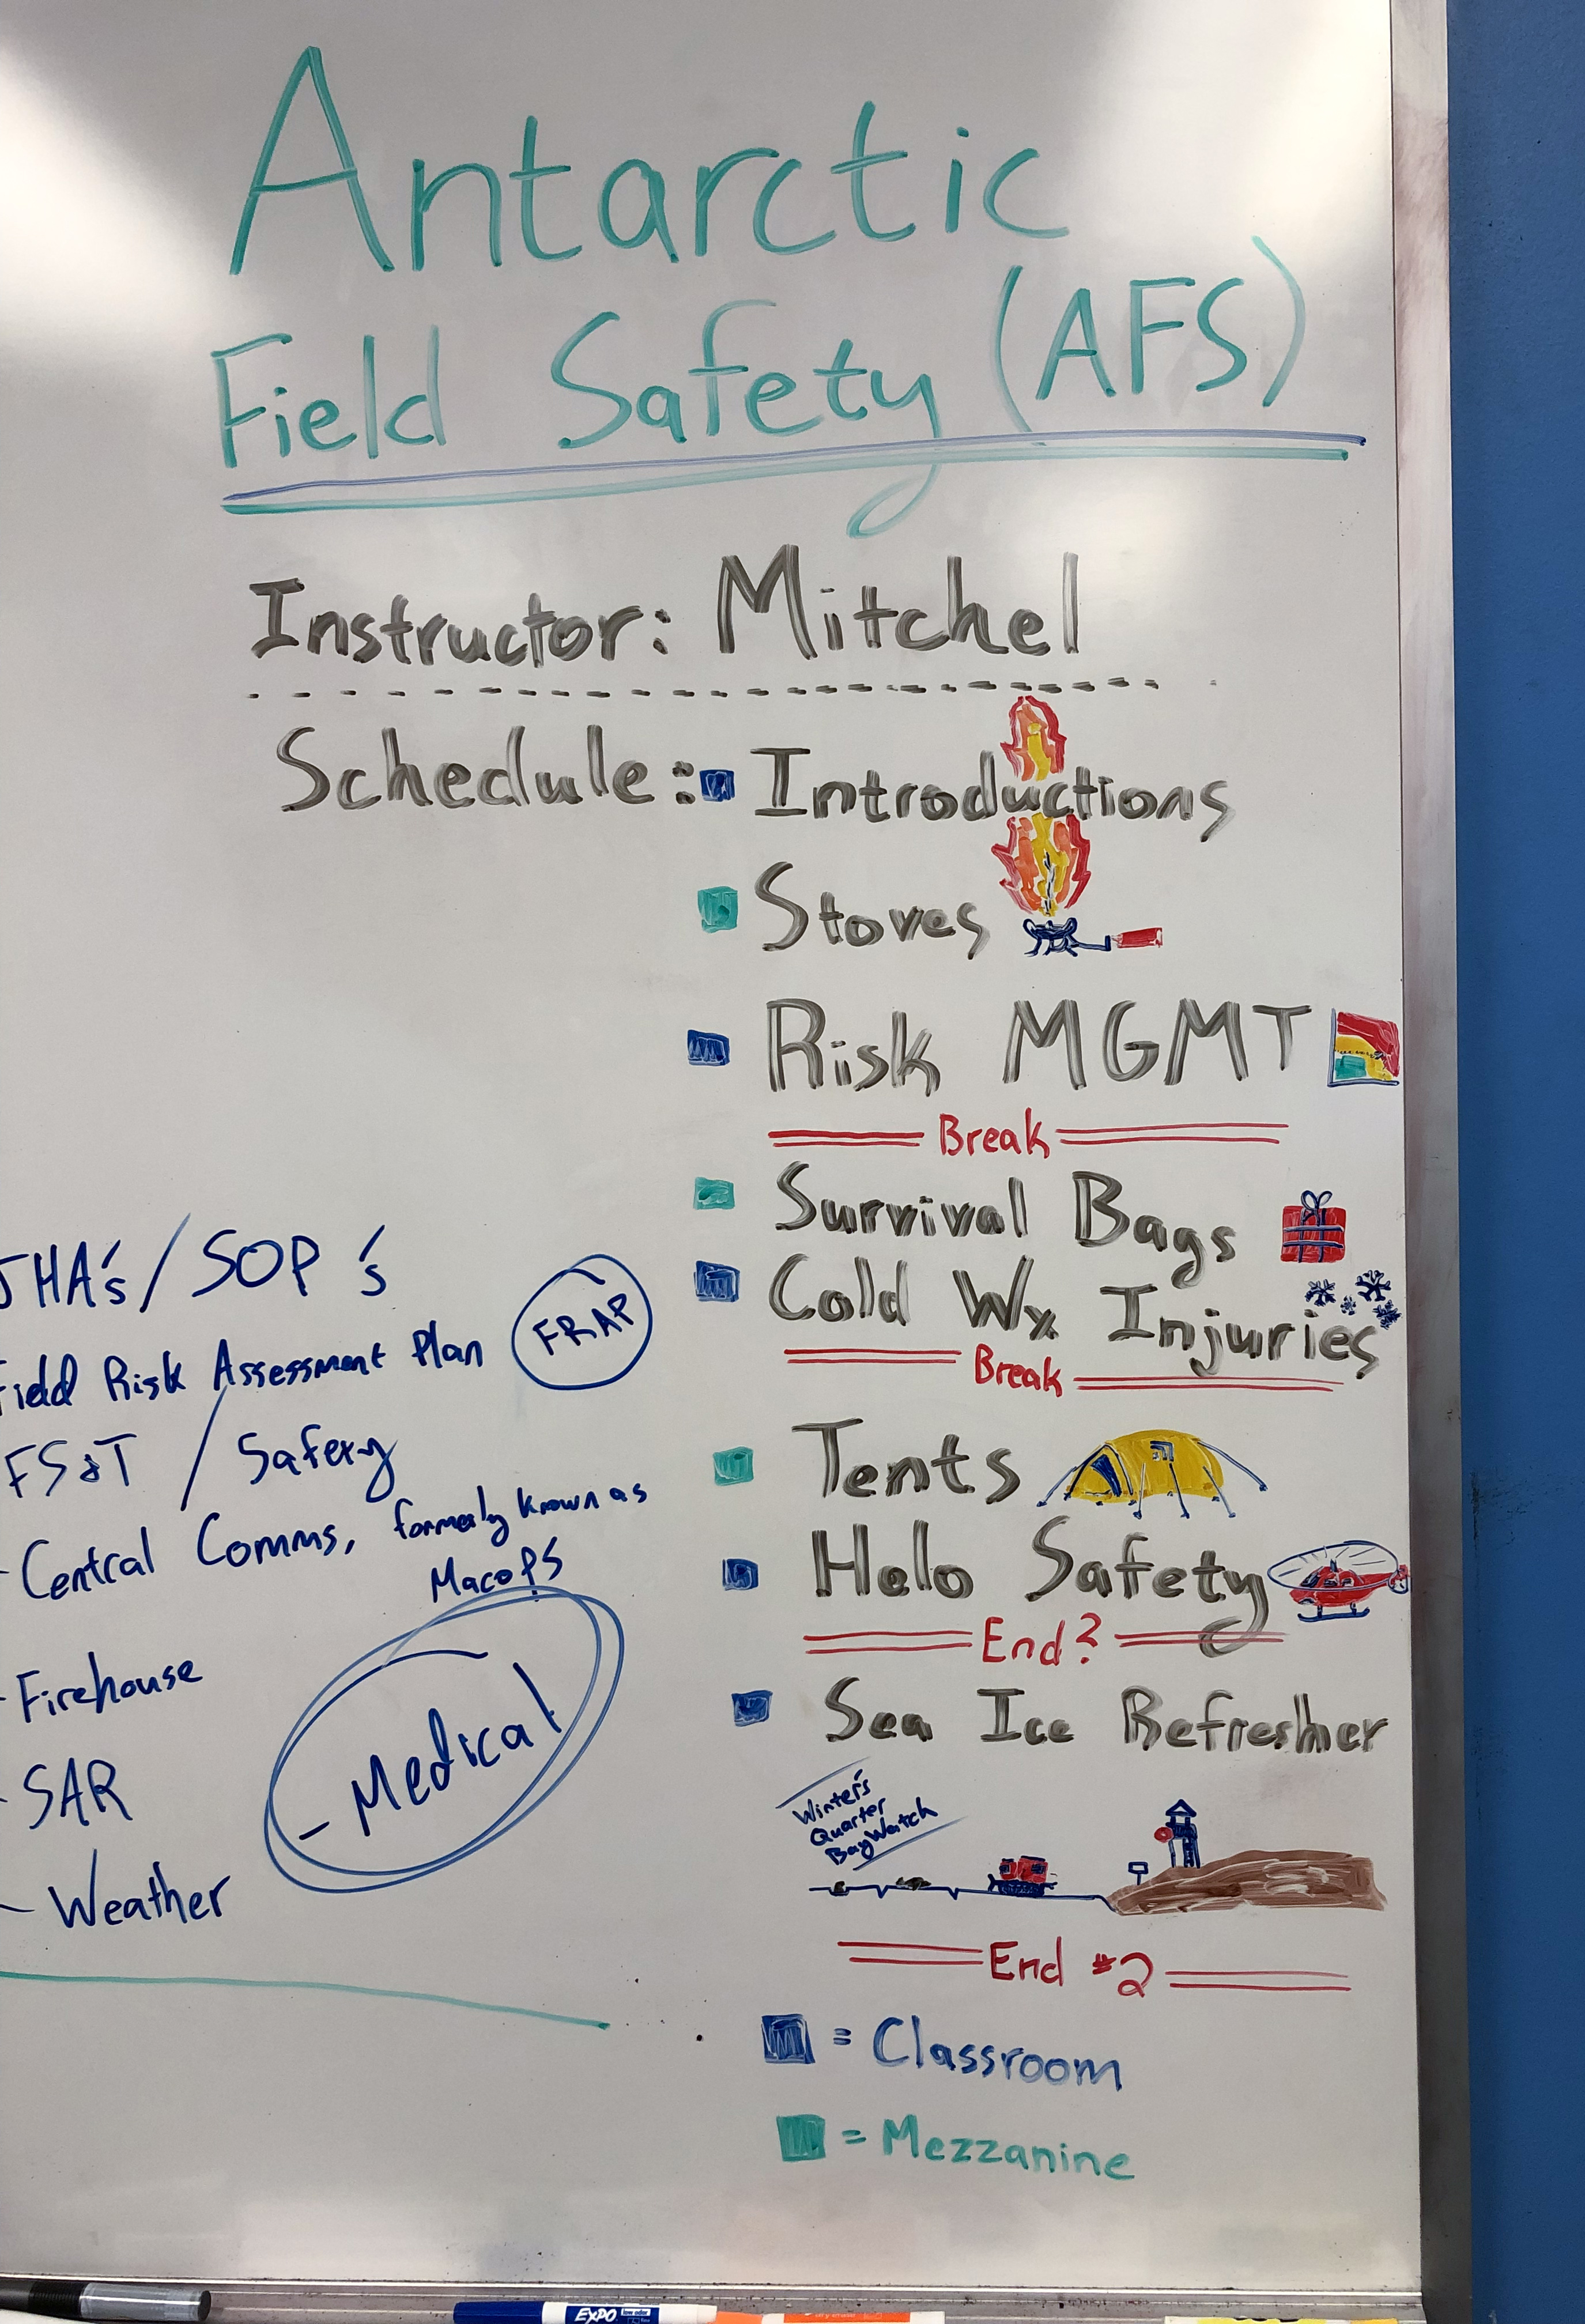 Antarctic
Field Safety (AFS)
Instructor: Mitchel
Schedule: Introductions
Stoves
Risk MGMT
Break
Survival Bags
Cold Wx Injuries
Break
Tents
Helo Safety
End?
Sea Ice Refresher
Winter's
Quarter
BayWatch
End #2
= Classroom
= Mezzanine
JHA's / SOP's
Field Risk Assessment Plan FRAP
FS&T / Safety
- Central Comms, formerly known as
MacOps
- Firehouse
- SAR
- Medical
- Weather
EXPO
low odor